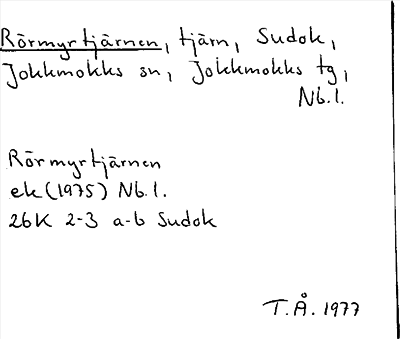 Rörmyrtjärnen, tjärn, Sudok,
Jokkmokks sn, Jokkmokks tg,
Nb.l.
Rörmyrtjärnen
ek (1975) Nb.l.
26K 2-3 a-b Sudok
T.Å. 1977